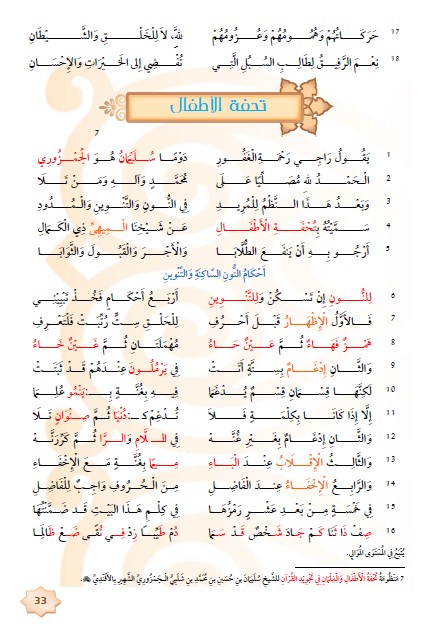 17 حَرَكَاتُهُمْ وَهُمُومُهُمْ وَعُزُومُهُمْ لِلهِ، لاَ لِلْخَلْقِ وَالشَّيْطَانِ
18 نِعْمَ الرَّفِيقُ لِطَالِبِ السُّبُلِ الَّتِي تُفْضِي إِلَى الْخَيْرَاتِ وَالإِحْسَانِ
تحفة الأطفال
7
1 يَقُولُ رَاجِي رَحْمَةِ الْغَفُورِ دَوْمًا سُلَيْمَانُ هُوَ الْجَمْزُورِي
2 الْحَمْدُ لِلهِ مُصَلِّيًا عَلَى مُحَمَّدٍ وَآلِهِ وَمَنْ تَلَا
3 وَبَعْدُ هَذَا النَّظْمُ لِلْمُرِيدِ فِي النُّونِ وَالتَّنْوِينِ وَالْمُدُودِ
4 سَمَّيْتُهُ بِتُحْفَةِ الْأَطْفَالِ عَنْ شَيْخِنَا الْمِيهِيِّ ذِي الْكَمَالِ
5 أَرْجُو بِهِ أَنْ يَنْفَعَ الطُّلَّابَا وَالْأَجْرَ وَالْقَبُولَ وَالثَّوَابَا
أَحْكَامُ النُّونِ السَّاكِنَةِ وَالتَّنْوِينِ
6 لِلنُّونِ إِنْ تَسْكُنْ وَلِلتَّنْوِينِ أَرْبَعُ أَحْكَامٍ فَخُذْ تَبْيِينِي
7 فَالْأَوَّلُ الْإِظْهَارُ قَبْلَ أَحْرُفِ لِلْحَلْقِ سِتٍّ رُتِّبَتْ فَلْتَعْرِفِ
8 هَمْزٌ فَهَاءٌ ثُمَّ عَيْنٌ حَاءُ مُهْمَلَتَانِ ثُمَّ غَيْنٌ خَاءُ
9 وَالثَّانِ إِدْغَامٌ بِسِتَّةٍ أَتَتْ فِي يَرْمُلُونَ عِنْدَهُمْ قَدْ ثَبَتَتْ
10 لَكِنَّهَا قِسْمَانِ قِسْمٌ يُدْغَمَا فِيهِ بِغُنَّةٍ بِـ: يَنْمُو عُلِمَا
11 إِلَّا إِذَا كَانَا بِكِلْمَةٍ فَلَا تُدْغِمْ كَـ: دُنْيَا ثُمَّ صِنْوَانٍ تَلَا
12 وَالثَّانِ إِدْغَامٌ بِغَيْرِ غُنَّهْ فِي اللَّامِ وَالرَّا ثُمَّ كَرِّرَنَّهْ
13 وَالثَّالِثُ الْإِقْلَابُ عِنْدَ الْبَاءِ مِيمًا بِغُنَّةٍ مَعَ الْإِخْفَاءِ
14 وَالرَّابِعُ الْإِخْفَاءُ عِنْدَ الْفَاضِلِ مِنَ الْحُرُوفِ وَاجِبٌ لِلْفَاضِلِ
15 فِي خَمْسَةٍ مِنْ بَعْدِ عَشْرٍ رَمْزُهَا فِي كِلْمِ هَذَا الْبَيْتِ قَدْ ضَمَّنْتُهَا
16 صِفْ ذَا ثَنَا كَمْ جَادَ شَخْصٌ قَدْ سَمَا دُمْ طَيِّبًا زِدْ فِي تُقًى ضَعْ ظَالِمَا
يُتْبَعُ فِي الْمُسْتَوَى الْمُوَالِي.
7 مَنْظُومَةُ تُحْفَةِ الْأَطْفَالِ وَالْغِلْمَانِ فِي تَجْوِيدِ الْقُرْآنِ لِلشَّيْخِ سُلَيْمَانَ بْنِ حُسَيْنِ بْنِ مُحَمَّدِ بْنِ شَلَبِيٍّ الْجَمْزُورِيِّ الشَّهِيرِ بِالْأَفَنْدِيِّ
33